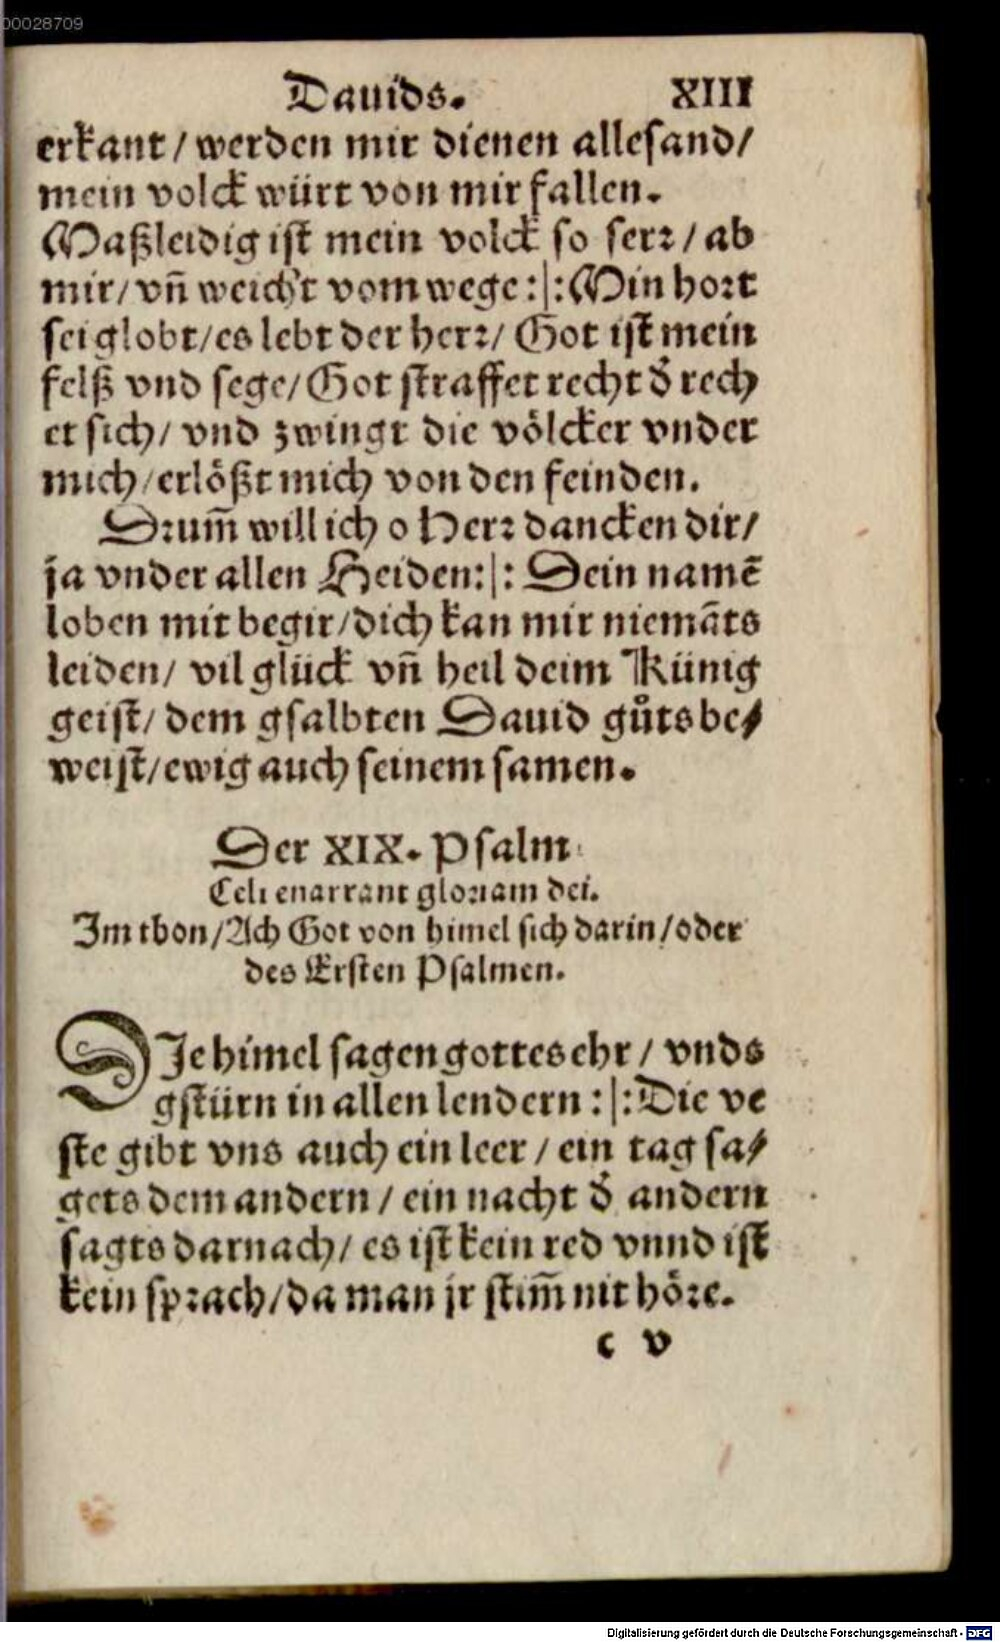 00028709
Dauids. XIII
erkant / werden mir dienen allesand /
mein volck würt von mir fallen.
Maßleidig ist mein volck so serꝛ / ab
mir / vñ weicht vom wege :|: Min hoꝛt
sei globt / es lebt der herꝛ / Got ist mein
felß vnd sege / Got straffet recht d̕ rech
et sich / vnd zwingt die völcker vnder
mich / erlößt mich von den feinden.
Dꝛum̃ will ich o Herꝛ dancken dir /
ja vnder allen Heiden :|: Dein namẽ
loben mit begir / dich kan mir niemãts
leiden / vil glück vñ heil deim Künig
geist / dem gsalbten Dauid gůts be⸗
weist / ewig auch seinem samen.
Der XIX. Psalm
Celi enarrant gloꝛiam dei.
Im thon / Ach Got von himel sich darin / oder
des Ersten Psalmen.
DIe himel sagen gottes ehr / vnds
gstürn in allen lendern :|: Die ve
ste gibt vns auch ein leer / ein tag sa⸗
gets dem andern / ein nacht d̕ andern
sagts darnach / es ist kein red vnnd ist
kein spꝛach / da man jr stim̃ nit höꝛe.
c v
Digitalisierung gefördert durch die Deutsche Forschungsgemeinschaft - DFG